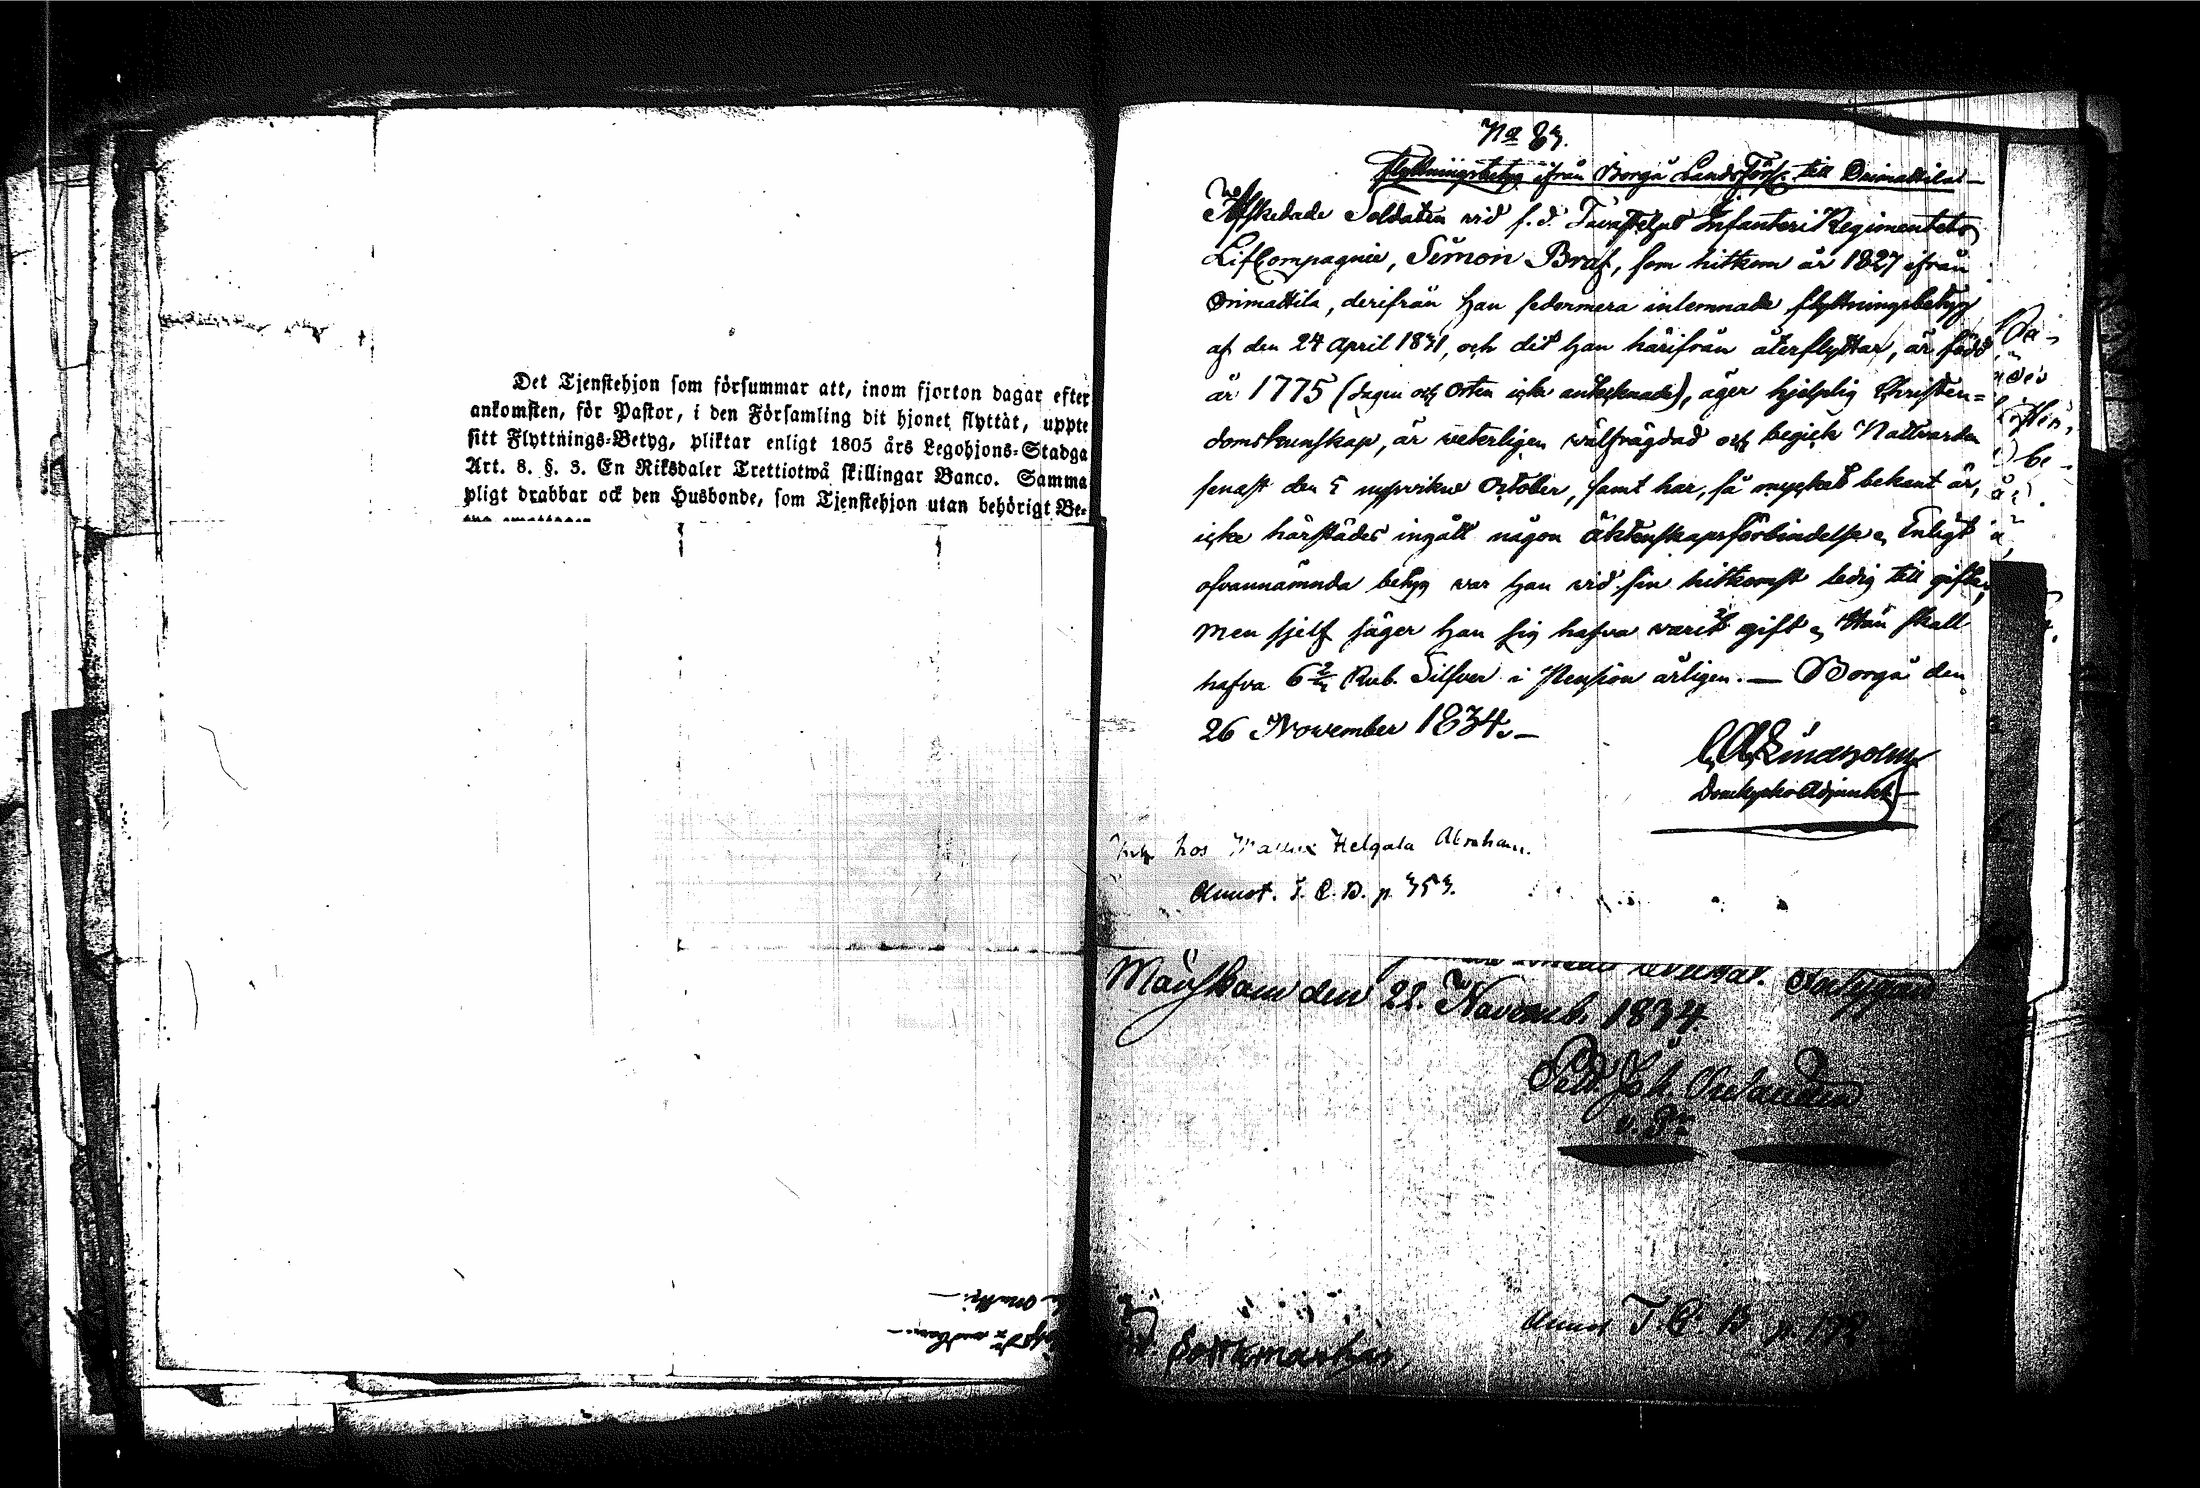 Det Tjenstehjon som försummar att, inom fjorton dagar efter
ankomsten, för Pastor, i den Församling dit hjonet flyttat, uppte
sitt Flyttnings-Betyg, pliktar enligt 1805 års Legohjons-Stadga
Art. 8. §. 3. En Riksdaler Trettiotwå skillingar Banco. Samma
pligt drabbar ock den Husbonde, som Tjenstehjon utan behörigt Be-
No 83.
Flyttningsbetyg ifrån Borgå Lands Förs. till Orimattila
Afskedade Soldaten vid f.d. Tavastehus Infanteri Regimentets
Lif Compagnie, Simon Braf, som hitkom år 1827 ifrån
Orimattila, derifrån han sedermera inlemnade flyttningsbetyg
af den 24 April 1831, och dit han härifrån återflyttar, är född
år 1775 (dagen och Orten icke antecknade), äger hjelplig Christen-
domskunskap, är veterligen välfrägdad och begick Nattvarden
senast den 5 nyssvikne October, samt har, så mycket bekant är,
icke härstädes ingått någon äktenskapsförbindelse. Enligt
ofvannämnda betyg var han vid sin hitkomst ledig till gifte,
men sjelf säger han sig hafva varit gift. Han skall
hafva 6 2/3 Rub. Silfver i Pension årligen. — Borgå den
26 November 1834. —
Lindholm
Domkyrko Adjunkt
hos Helgala Abraham.
Annot. I. C. B. p. 353.
den 22. Novemb. 1834.
Joh.
Annot I C. B p.